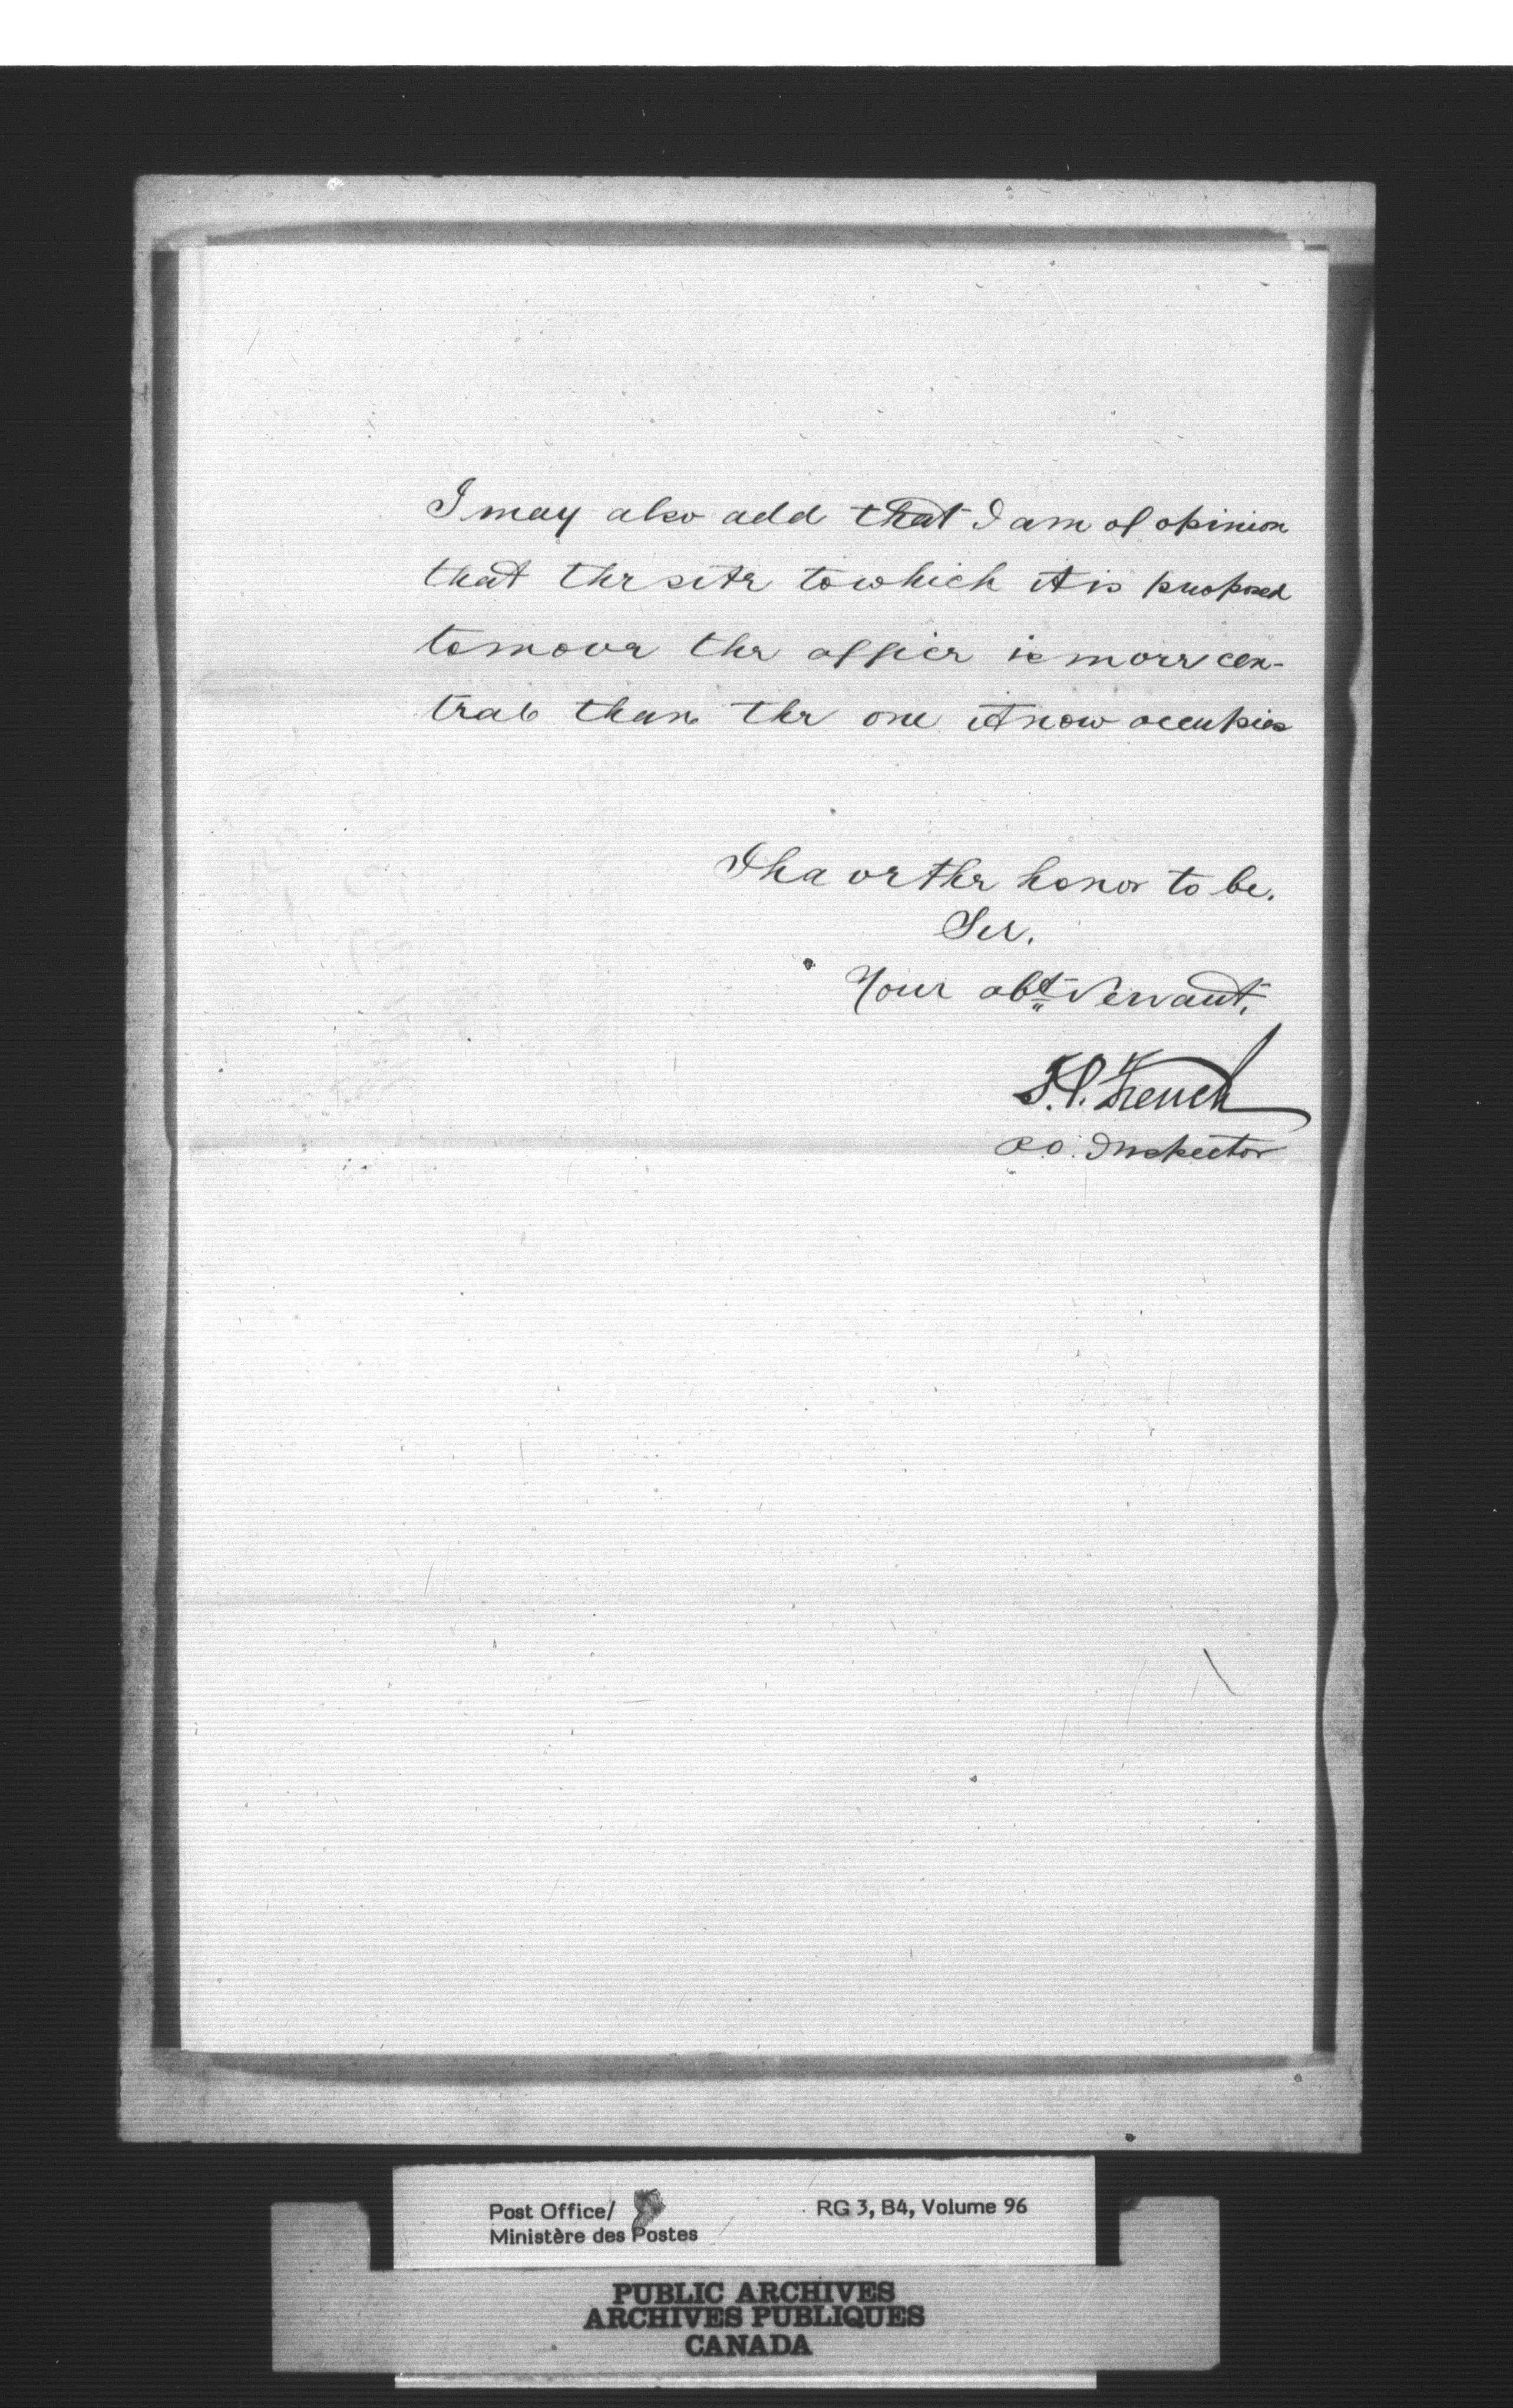 I may also add that I am of opinion
that the site to which it is proposed
to move the office is more cen-
tral than the one it now occupies
I have the honor to be.
Sir.
Your obt Servant,
T.P. French
P.O. Inspector
Post Office/
Ministère des Postes
RG 3, B4, Volume 96
PUBLIC ARCHIVES
ARCHIVES PUBLIQUES
CANADA